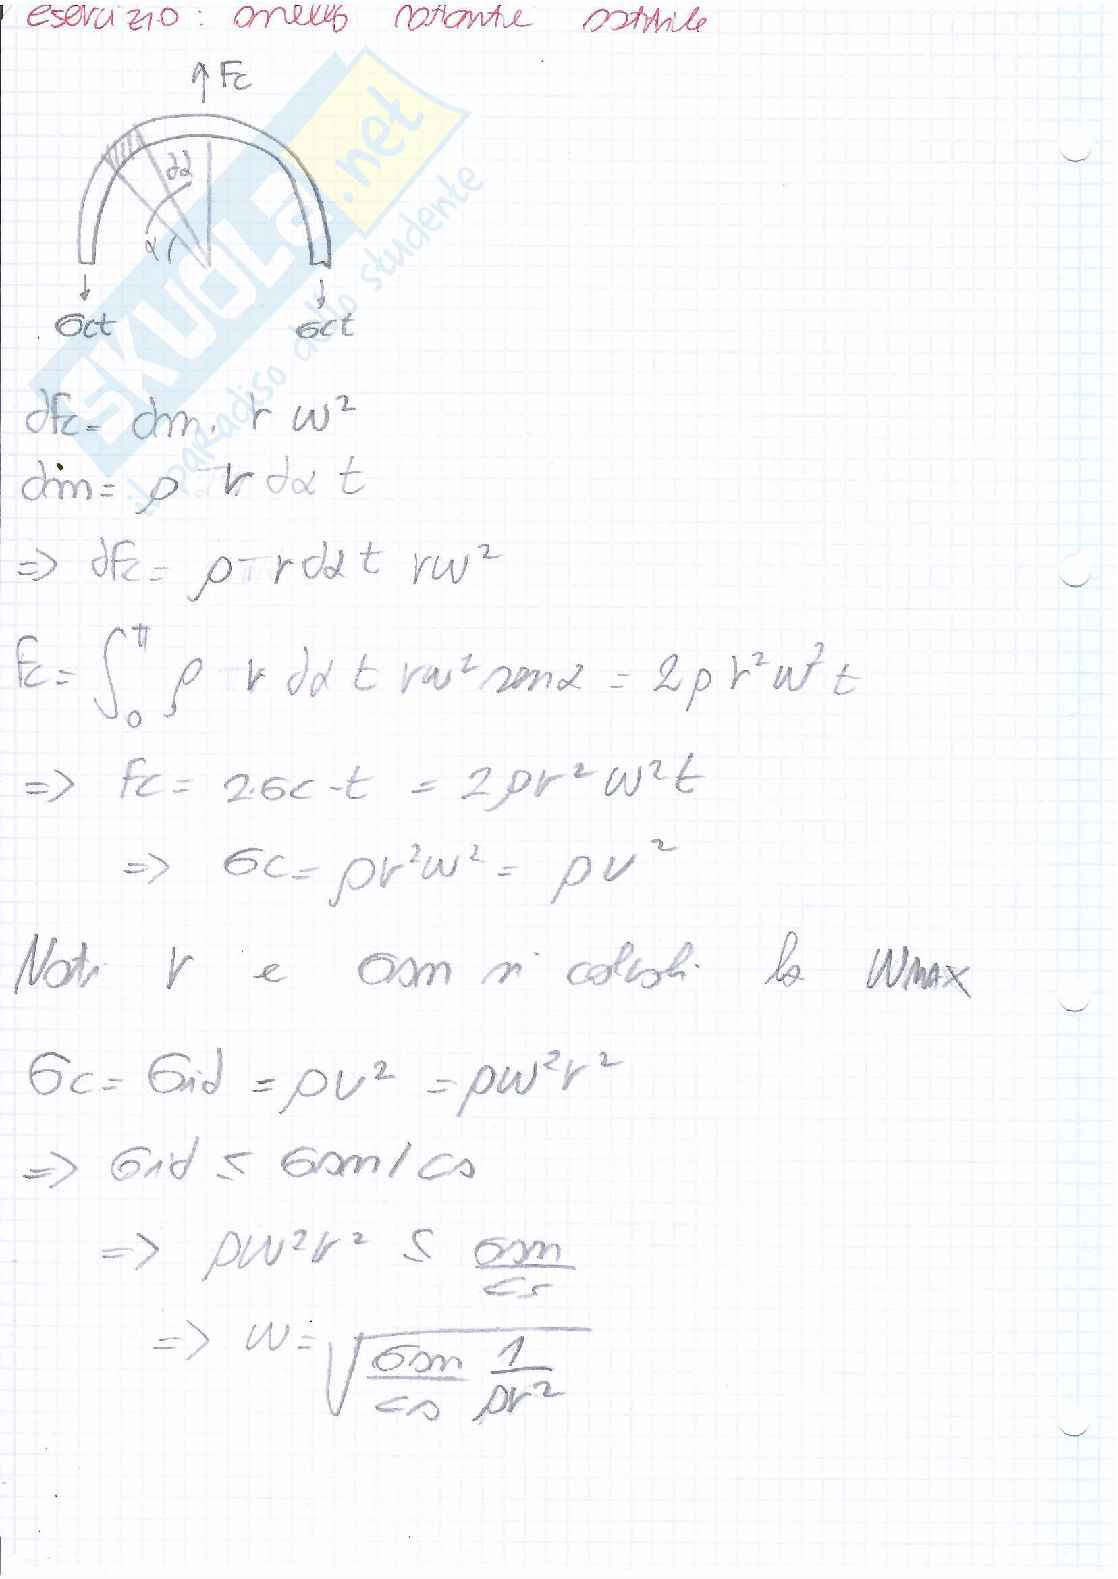 esercizio: anello rotante sottile
↑ Fc
dα
α
σct
σct
SKUOLA.net
il paradiso dello studente
dFc = dm · r ω²
dm = ρ r dα t
=> dFc = ρ r dα t rω²
Fc = ∫₀^π ρ r dα t rω² senα = 2ρr²ω²t
=> Fc = 2·σc·t = 2ρr²ω²t
=> σc = ρr²ω² = ρv²
Noti r e σam si calcoli la ωMAX
σc = σid = ρv² = ρω²r²
=> σid ≤ σam/cs
=> ρω²r² ≤ σam/cs
=> ω = √(σam/cs 1/ρr²)